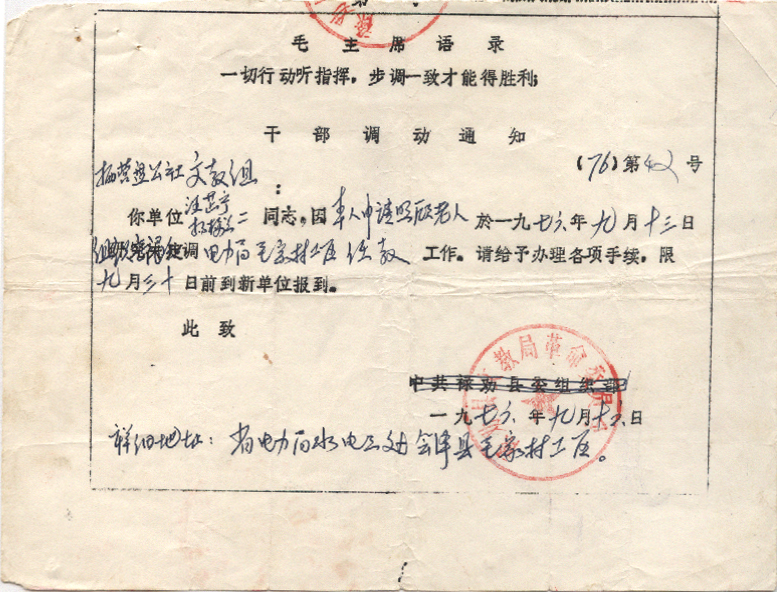 第 号
毛主席语录
一切行动听指挥，步调一致才能得胜利；
干部调动通知
（76）第 号
营盘公社文教组：
你单位 二 同志，因本人申请照顾老人 於一九七六年九月十三日
调电力局毛家村工区任教 工作。请给予办理各项手续，限
九月三十日前到新单位报到。
此致
教局革命委员会
中共禄劝县委组织部
一九七六年九月十六日
详细地址：省电力局水电三处会泽县毛家村工区。